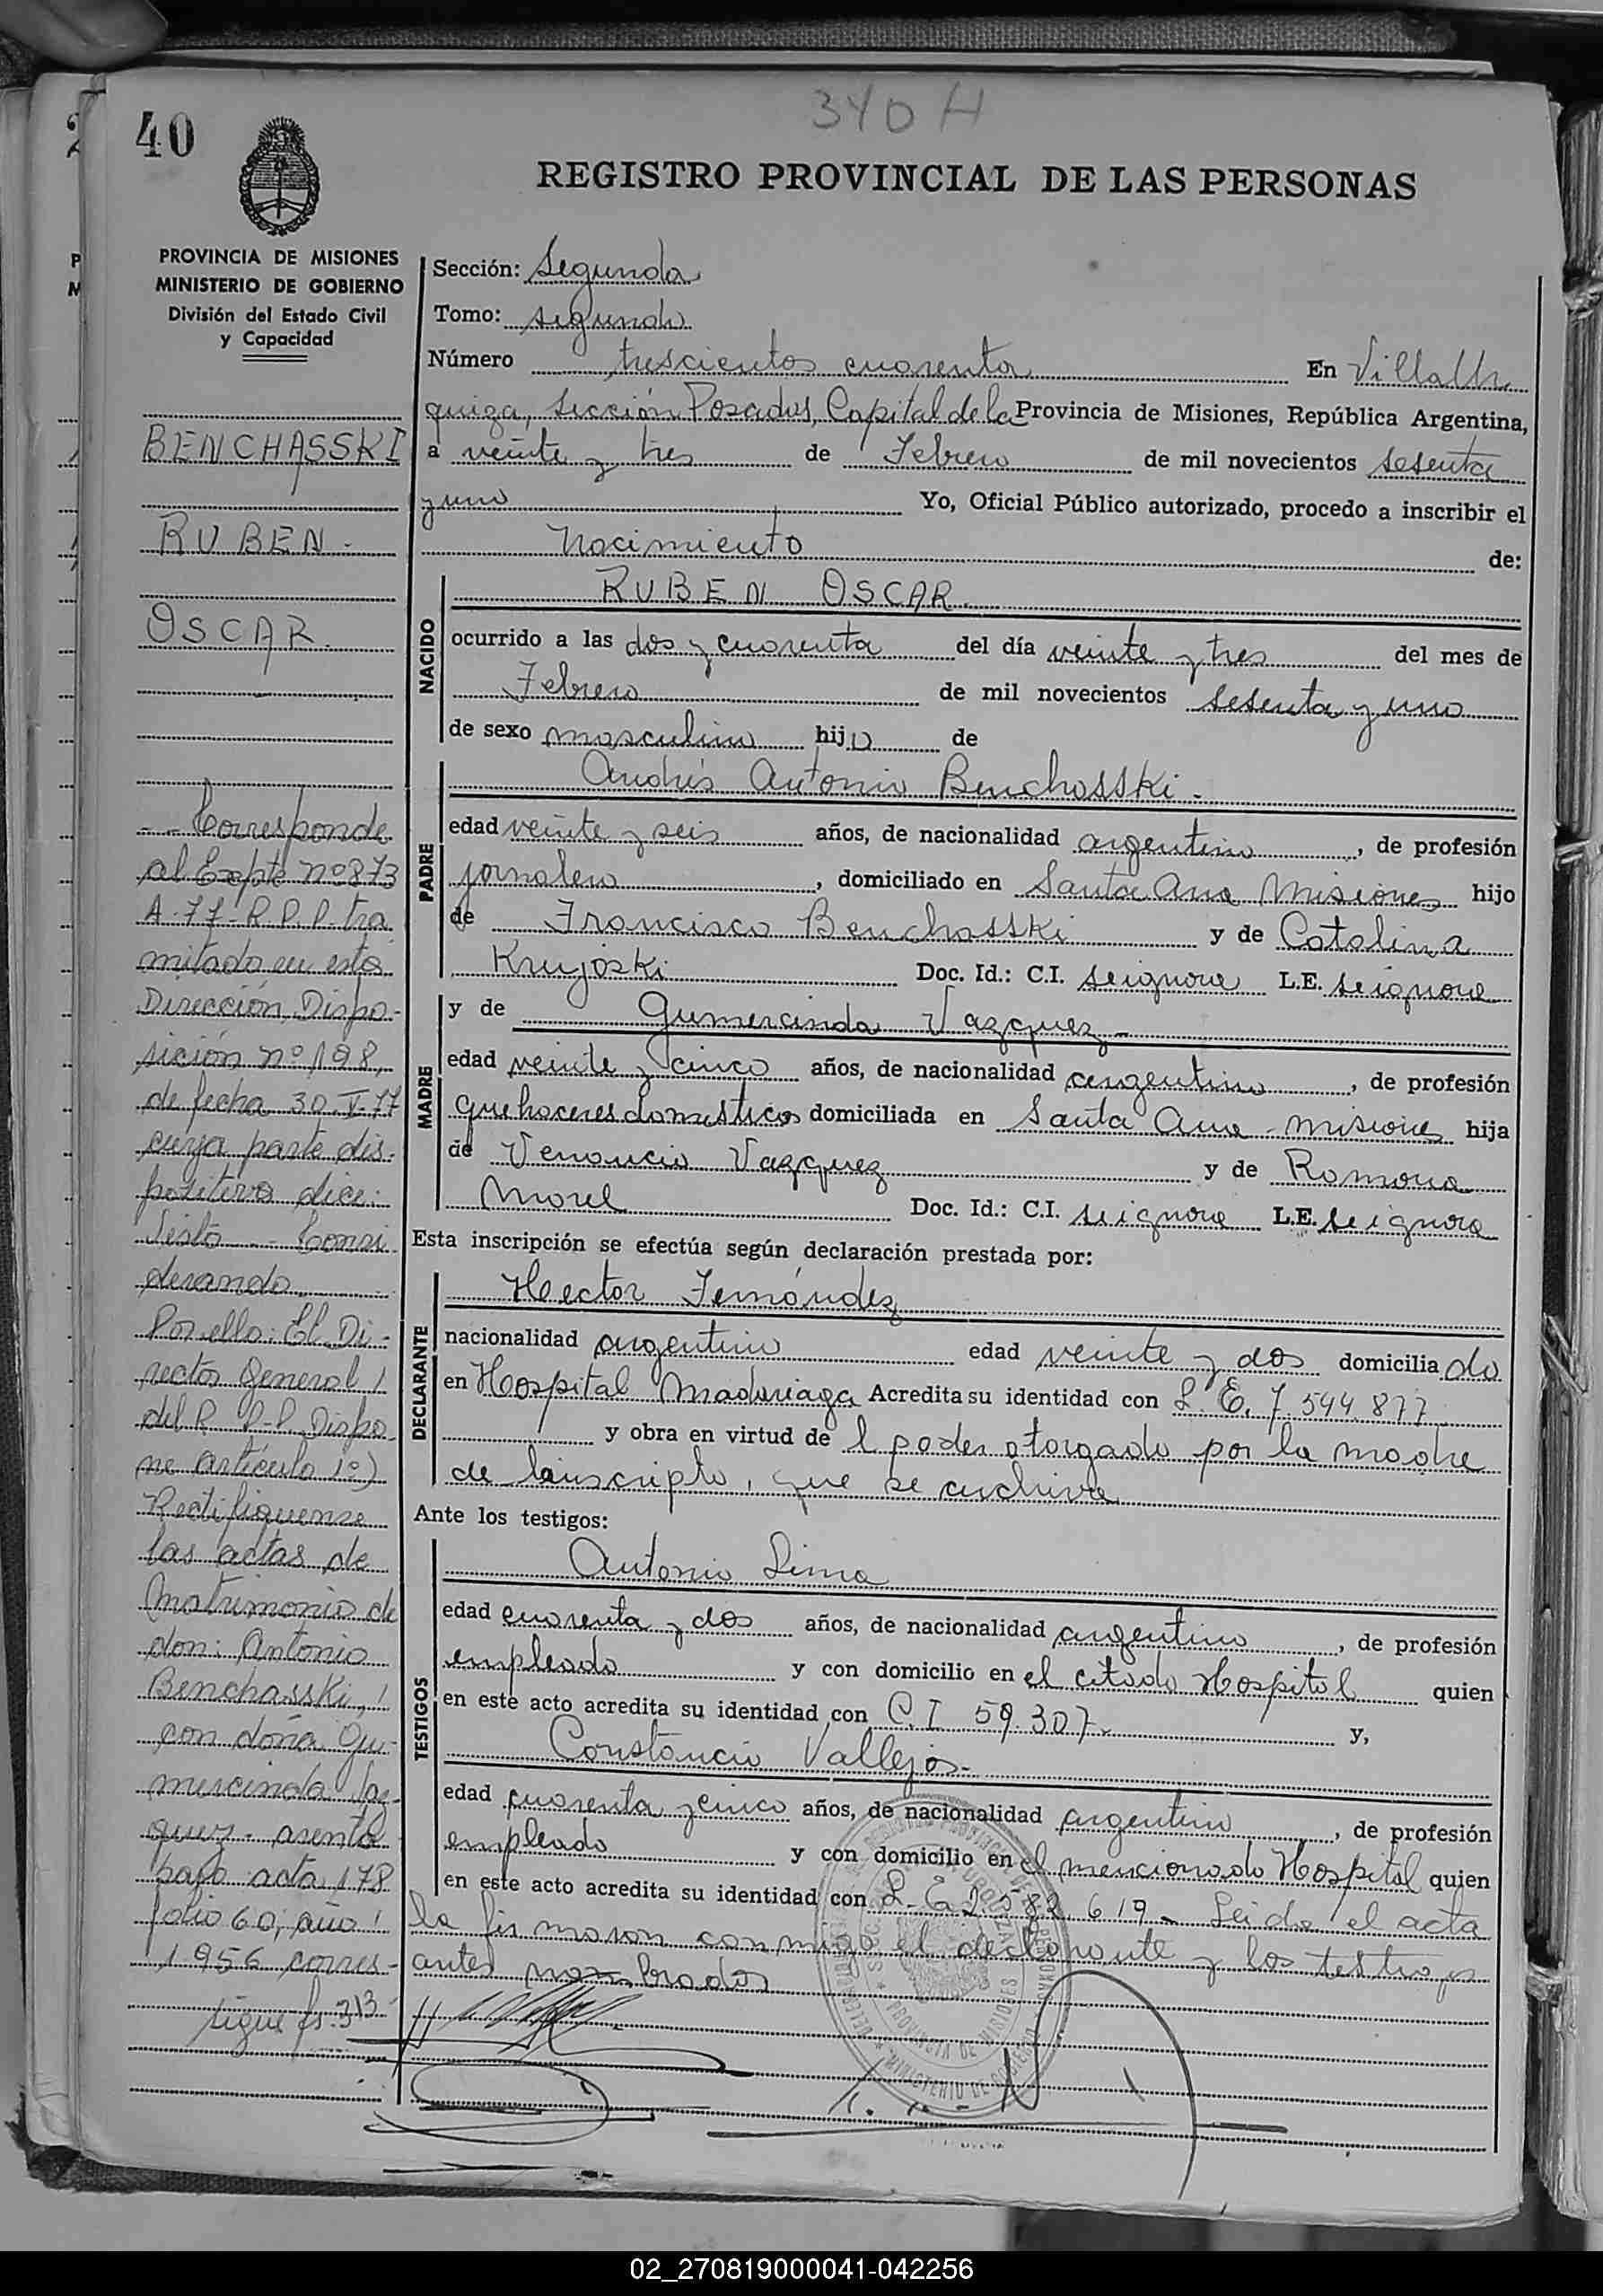 340 H
40
REGISTRO PROVINCIAL DE LAS PERSONAS
PROVINCIA DE MISIONES
MINISTERIO DE GOBIERNO
División del Estado Civil
y Capacidad
BENCHASSKI
RUBEN -
OSCAR.
- - Corresponde
al Expte nº 873
A-77-R.P.P. tra
mitado en esta
Dirección, Dispo-
sición nº 198,
de fecha 30.V.77
cuya parte dis-
positiva dice:
Visto - Consi
derando
Por ello: El Di-
rector General /
del R. P-P. Dispo
ne artículo 1º)
Rectifiquense
las actas de
Matrimonio de
don: Antonio
Benchasski, /
con doña Gu-
mercinda Vaz-
quez - asenta
bajo acta 178
folio 60, año /
1.956 corres-
sigue fs. 313-
Sección: Segunda
Tomo: segundo
Número trescientos cuarenta En Villa Ur
quiza, Sección Posadas, Capital de la Provincia de Misiones, República Argentina,
a veinte y tres de Febrero de mil novecientos sesenta
y uno Yo, Oficial Público autorizado, procedo a inscribir el
nacimiento de:
NACIDO
RUBEN OSCAR.
ocurrido a las dos y cuarenta del día veinte y tres del mes de
Febrero de mil novecientos sesenta y uno
de sexo masculino hijo de
PADRE
Andrés Antonio Benchasski -
edad veinte y seis años, de nacionalidad argentino, de profesión
jornalero, domiciliado en Santa Ana Misiones hijo
de Francisco Benchasski y de Catalina
Krujoski Doc. Id.: C.I. se ignora L.E. se ignora
MADRE
y de Gumercinda Vazquez -
edad veinte y cinco años, de nacionalidad argentina, de profesión
quehaceres domesticos domiciliada en Santa Ana - Misiones hija
de Venancio Vazquez y de Ramona
Morel Doc. Id.: C.I. se ignora L.E. se ignora
Esta inscripción se efectúa según declaración prestada por:
DECLARANTE
Hector Fernández
nacionalidad argentino edad veinte y dos domiciliado
en Hospital Madariaga Acredita su identidad con L. E. 7.544.877
y obra en virtud del poder otorgado por la madre
de la inscripto, que se archiva
Ante los testigos:
TESTIGOS
Antonio Lima
edad cuarenta y dos años, de nacionalidad argentino, de profesión
empleado y con domicilio en el citado Hospital quien
en este acto acredita su identidad con C.I 59.307- y,
Constancio Vallejos-
edad cuarenta y cinco años, de nacionalidad argentino, de profesión
empleado y con domicilio en el mencionado Hospital quien
en este acto acredita su identidad con L.E 2.582.619 - Leida el acta
la firmaron conmigo el declarante y los testigos
antes nombrados
02_270819000041-042256